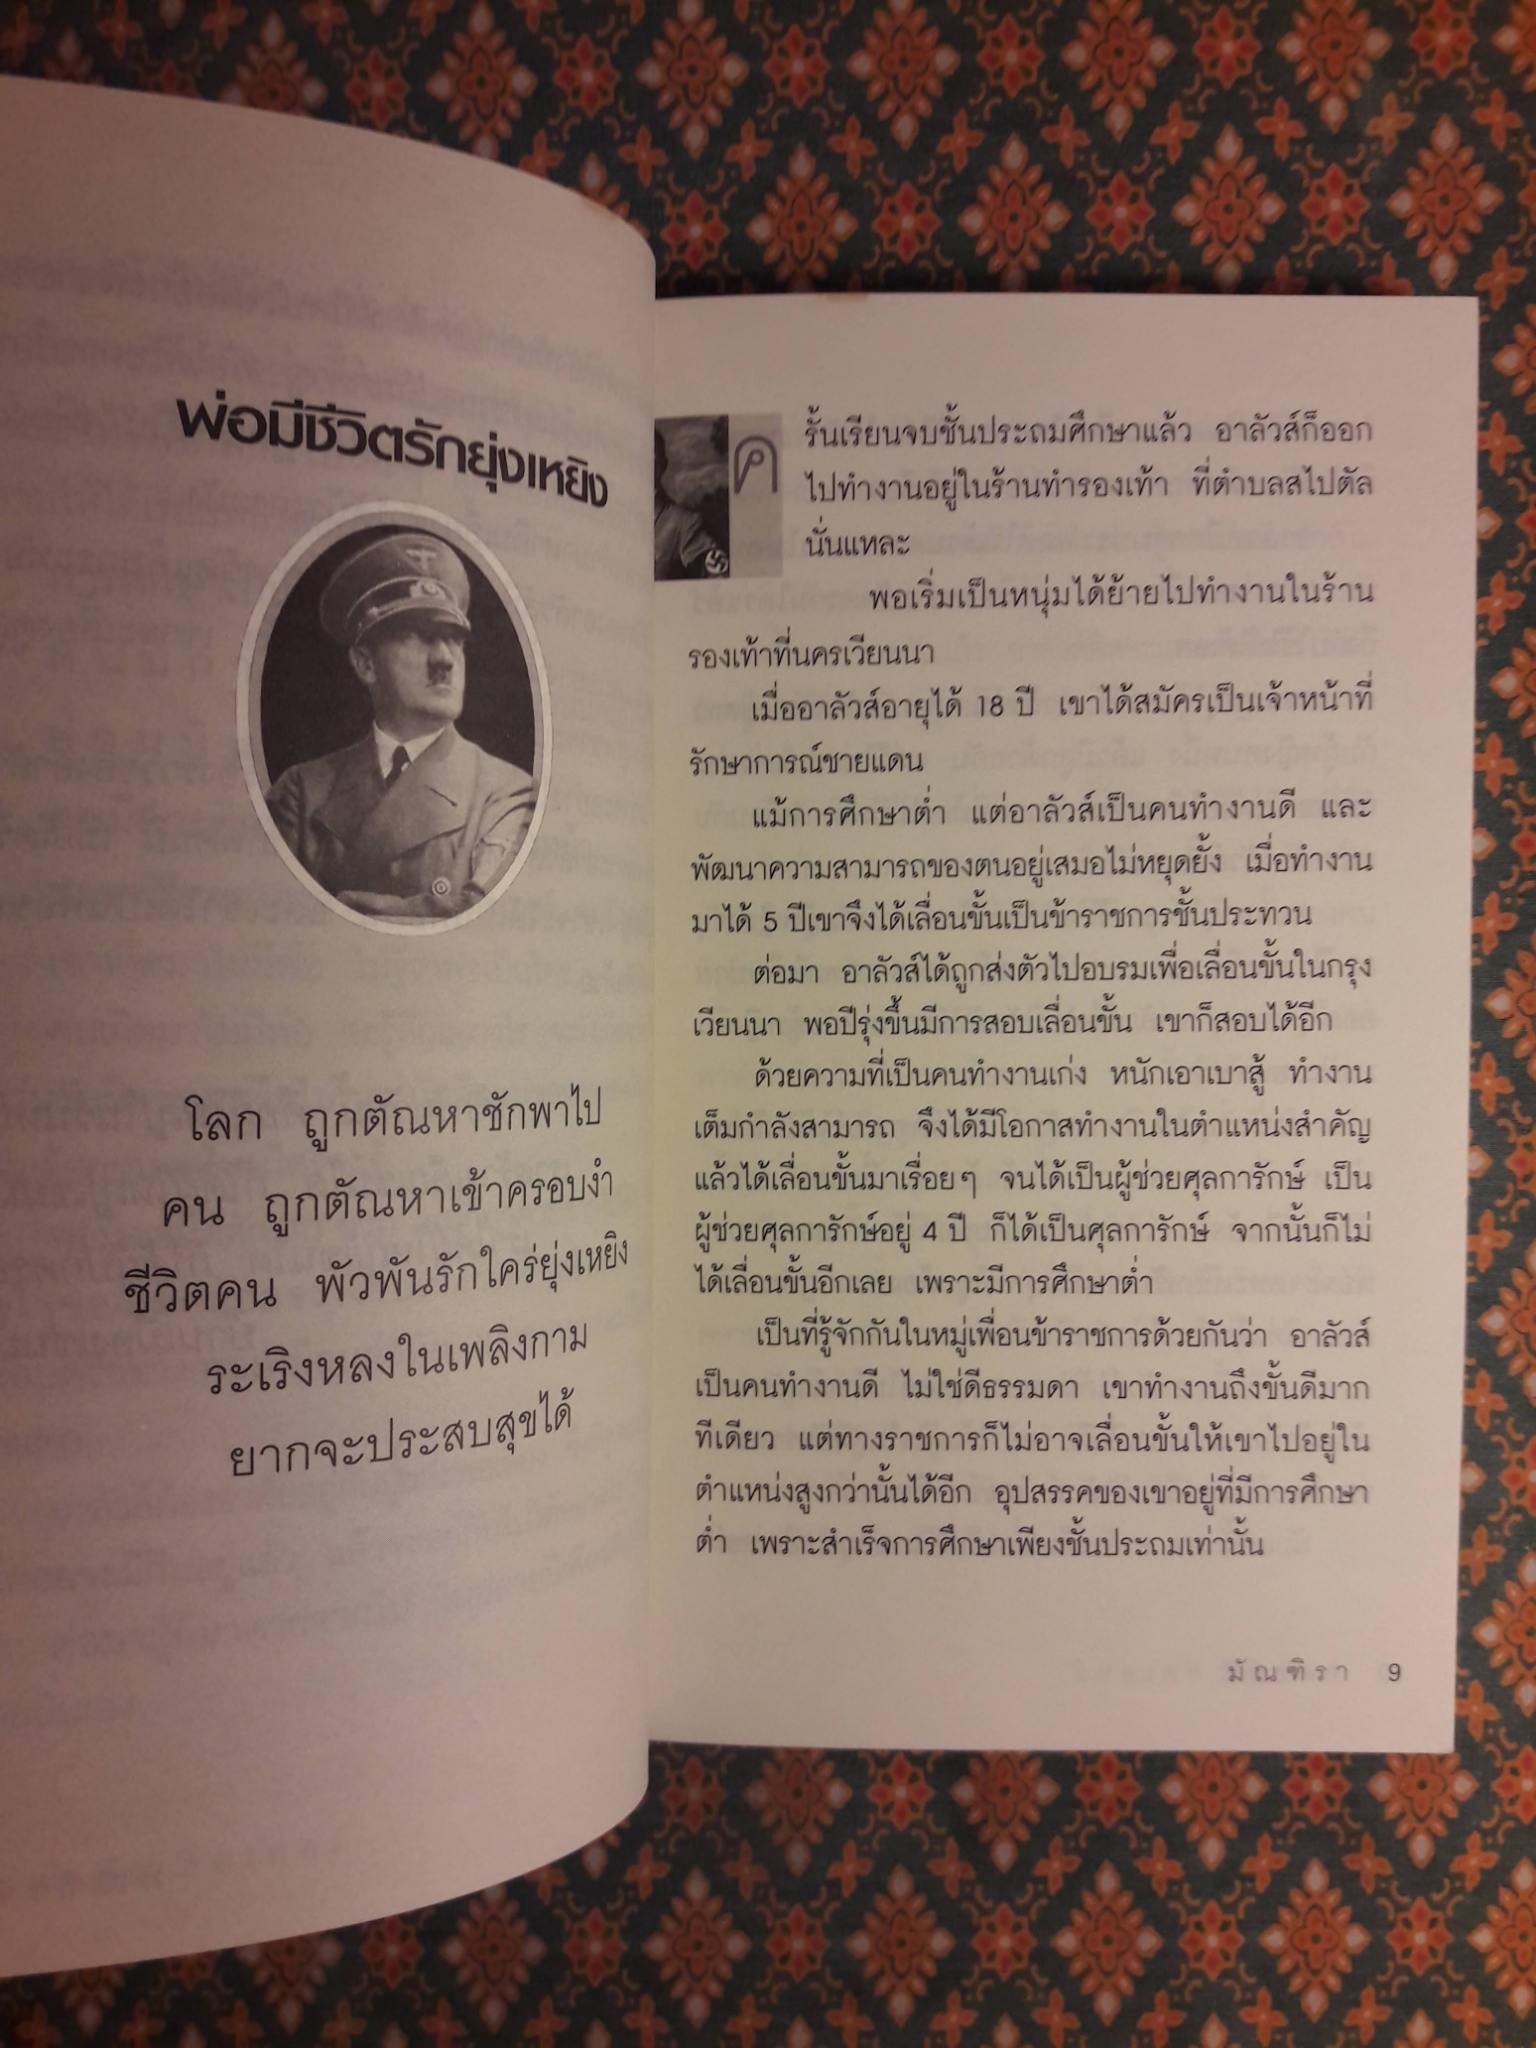 พ่อมีชีวิตรักยุ่งเหยิง
โลก ถูกตัณหาชักพาไป
คน ถูกตัณหาเข้าครอบงำ
ชีวิตคน พัวพันรักใคร่ยุ่งเหยิง
ระเริงหลงในเพลิงกาม
ยากจะประสบสุขได้
ครั้นเรียนจบชั้นประถมศึกษาแล้ว อาลัวส์ก็ออก
ไปทำงานอยู่ในร้านทำรองเท้า ที่ตำบลสไปตัล
นั่นแหละ
พอเริ่มเป็นหนุ่มได้ย้ายไปทำงานในร้าน
รองเท้าที่นครเวียนนา
เมื่ออาลัวส์อายุได้ 18 ปี เขาได้สมัครเป็นเจ้าหน้าที่
รักษาการณ์ชายแดน
แม้การศึกษาต่ำ แต่อาลัวส์เป็นคนทำงานดี และ
พัฒนาความสามารถของตนอยู่เสมอไม่หยุดยั้ง เมื่อทำงาน
มาได้ 5 ปีเขาจึงได้เลื่อนขั้นเป็นข้าราชการชั้นประทวน
ต่อมา อาลัวส์ได้ถูกส่งตัวไปอบรมเพื่อเลื่อนขั้นในกรุง
เวียนนา พอปีรุ่งขึ้นมีการสอบเลื่อนขั้น เขาก็สอบได้อีก
ด้วยความที่เป็นคนทำงานเก่ง หนักเอาเบาสู้ ทำงาน
เต็มกำลังสามารถ จึงได้มีโอกาสทำงานในตำแหน่งสำคัญ
แล้วได้เลื่อนขั้นมาเรื่อยๆ จนได้เป็นผู้ช่วยศุลการักษ์ เป็น
ผู้ช่วยศุลการักษ์อยู่ 4 ปี ก็ได้เป็นศุลการักษ์ จากนั้นก็ไม่
ได้เลื่อนขั้นอีกเลย เพราะมีการศึกษาต่ำ
เป็นที่รู้จักกันในหมู่เพื่อนข้าราชการด้วยกันว่า อาลัวส์
เป็นคนทำงานดี ไม่ใช่ดีธรรมดา เขาทำงานถึงขั้นดีมาก
ทีเดียว แต่ทางราชการก็ไม่อาจเลื่อนขั้นให้เขาไปอยู่ใน
ตำแหน่งสูงกว่านั้นได้อีก อุปสรรคของเขาอยู่ที่มีการศึกษา
ต่ำ เพราะสำเร็จการศึกษาเพียงชั้นประถมเท่านั้น
มัณฑิรา 9